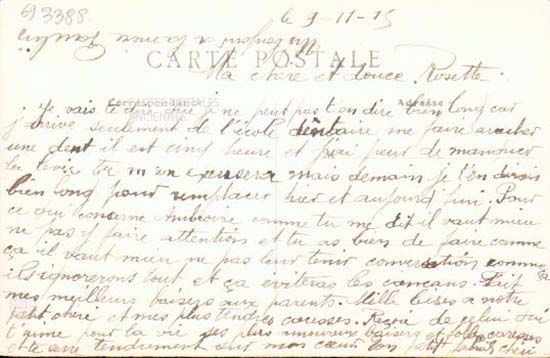 693388
le 9-11-15
CARTE POSTALE
Ma chère et douce Rosette.
Correspondance
Adresse
ANCIENNES
Je vais te dire que je ne peut pas t'en dire bien long car
j'arrive seulement de l'école dentaire me faire aracher
une dent il est cinq heure et j'ai peur de manquer
la levée tu m'en excusera mais demain je t'en dirais
bien long pour remplacer hier et aujourd'hui. Pour
ce qui concerne Ambroire comme tu me dit il vaut mieu
ne pas y faire attention et tu as bien de faire comme
ça il vaut mieu ne pas leur tenir conversation comme ça
ils ignoreront tout et ça éviteras les cancans. Fait
mes meilleurs baisers aux parents. Mille bises a notre
petit chere et mes plus tendres caresses. Reçoie de celui qui
t'aime pour la vie ses plus amoureux baisers et folles caresses
et te serre tendrement sur mon cœur ton petit